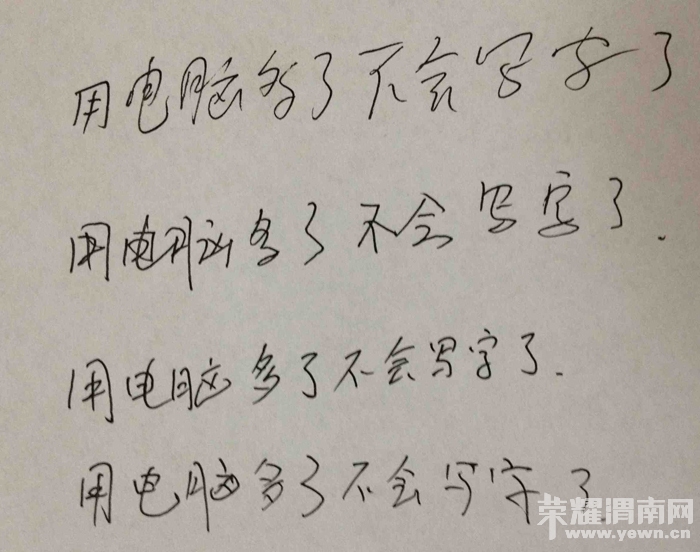 用电脑多了不会写字了
用电脑多了不会写字了.
用电脑多了不会写字了.
用电脑多了不会写字了
荣耀渭南网
www.yewn.cn